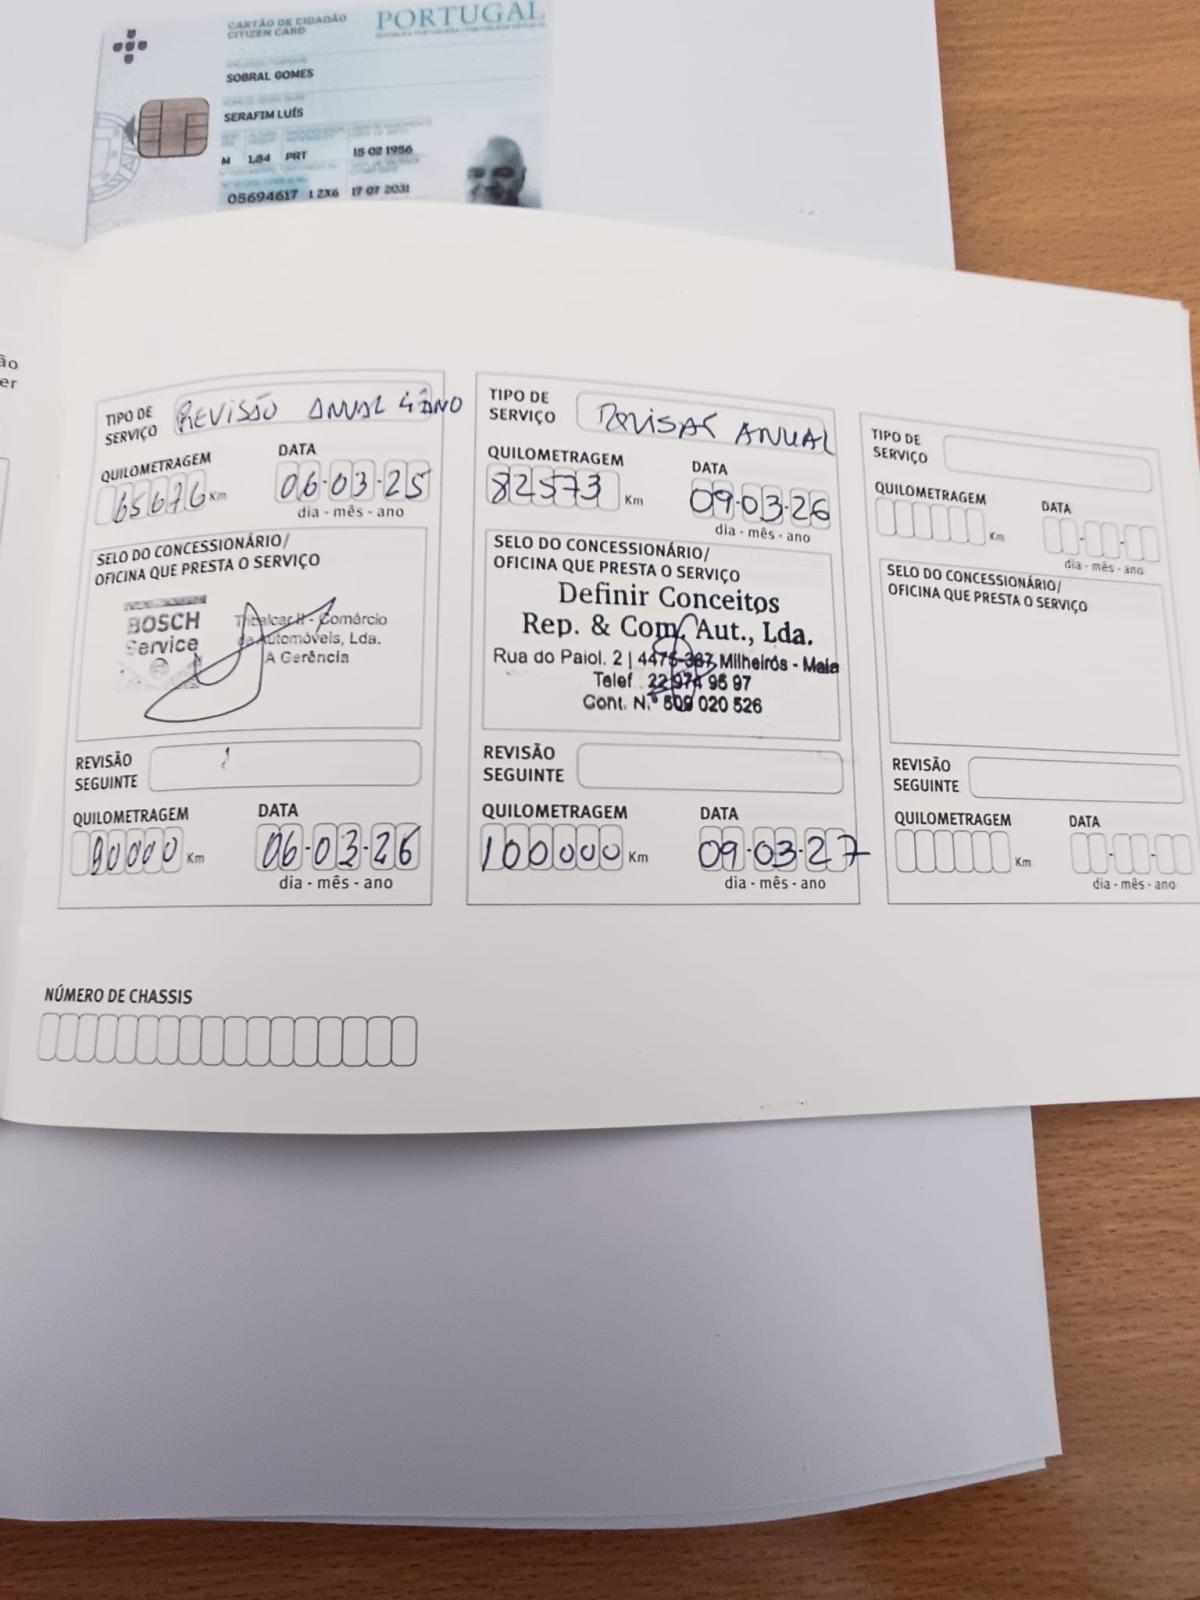 CARTÃO DE CIDADÃO
CITIZEN CARD
PORTUGAL
SOBRAL GOMES
SERAFIM LUÍS
M 1,84 PRT 15 02 1956
05694617 1 ZX6 17 07 2031
ão
er
TIPO DE
SERVIÇO
REVISÃO ANUAL 4º ANO
QUILOMETRAGEM
65676 Km
DATA
06-03-25
dia - mês - ano
SELO DO CONCESSIONÁRIO/
OFICINA QUE PRESTA O SERVIÇO
BOSCH
Service
Comércio
de Automóveis, Lda.
A Gerência
REVISÃO
SEGUINTE
QUILOMETRAGEM
90000 Km
DATA
06-03-26
dia - mês - ano
TIPO DE
SERVIÇO
ANUAL
QUILOMETRAGEM
82573 Km
DATA
09-03-26
dia - mês - ano
SELO DO CONCESSIONÁRIO/
OFICINA QUE PRESTA O SERVIÇO
Definir Conceitos
Rep. & Com. Aut., Lda.
Rua do Paiol, 2 | 4475-387 Milheirós - Maia
Telef. 22 974 95 97
Cont. N.º 509 020 526
REVISÃO
SEGUINTE
QUILOMETRAGEM
100000 Km
DATA
09-03-27
dia - mês - ano
TIPO DE
SERVIÇO
QUILOMETRAGEM
Km
DATA
dia - mês - ano
SELO DO CONCESSIONÁRIO/
OFICINA QUE PRESTA O SERVIÇO
REVISÃO
SEGUINTE
QUILOMETRAGEM
Km
DATA
dia - mês - ano
NÚMERO DE CHASSIS